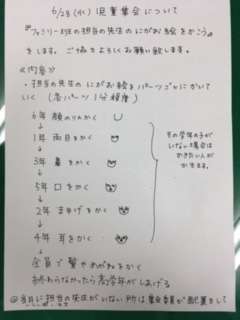 6/28(水)児童集会について
『ファミリー班の担当の先生のにがお絵をかこう』
をします。ご協力よろしくお願い致します。
《内容》
・担当の先生のにがお絵をパーツごとにかいて
いく(各パーツ1分程度)
6年 顔のりんかく
↓
1年 両目をかく
↓
3年 鼻をかく
↓
5年 口をかく
↓
2年 まゆげをかく
↓
4年 耳をかく
その学年の子が
いない場合は
かきたい人が
かきます。
全員で髪やめがねをかく
終わらなかったら高学年がしあげる
◎当日に担当の先生がいない所は集会委員が配置をして